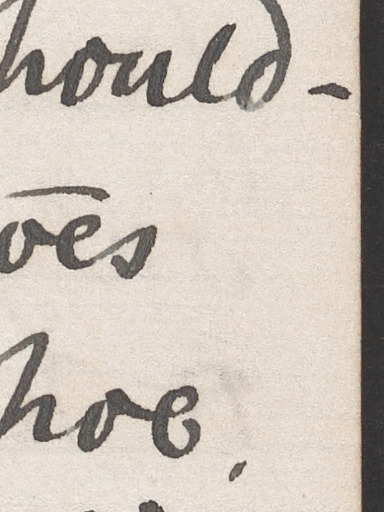 hould-
oes
hoe.